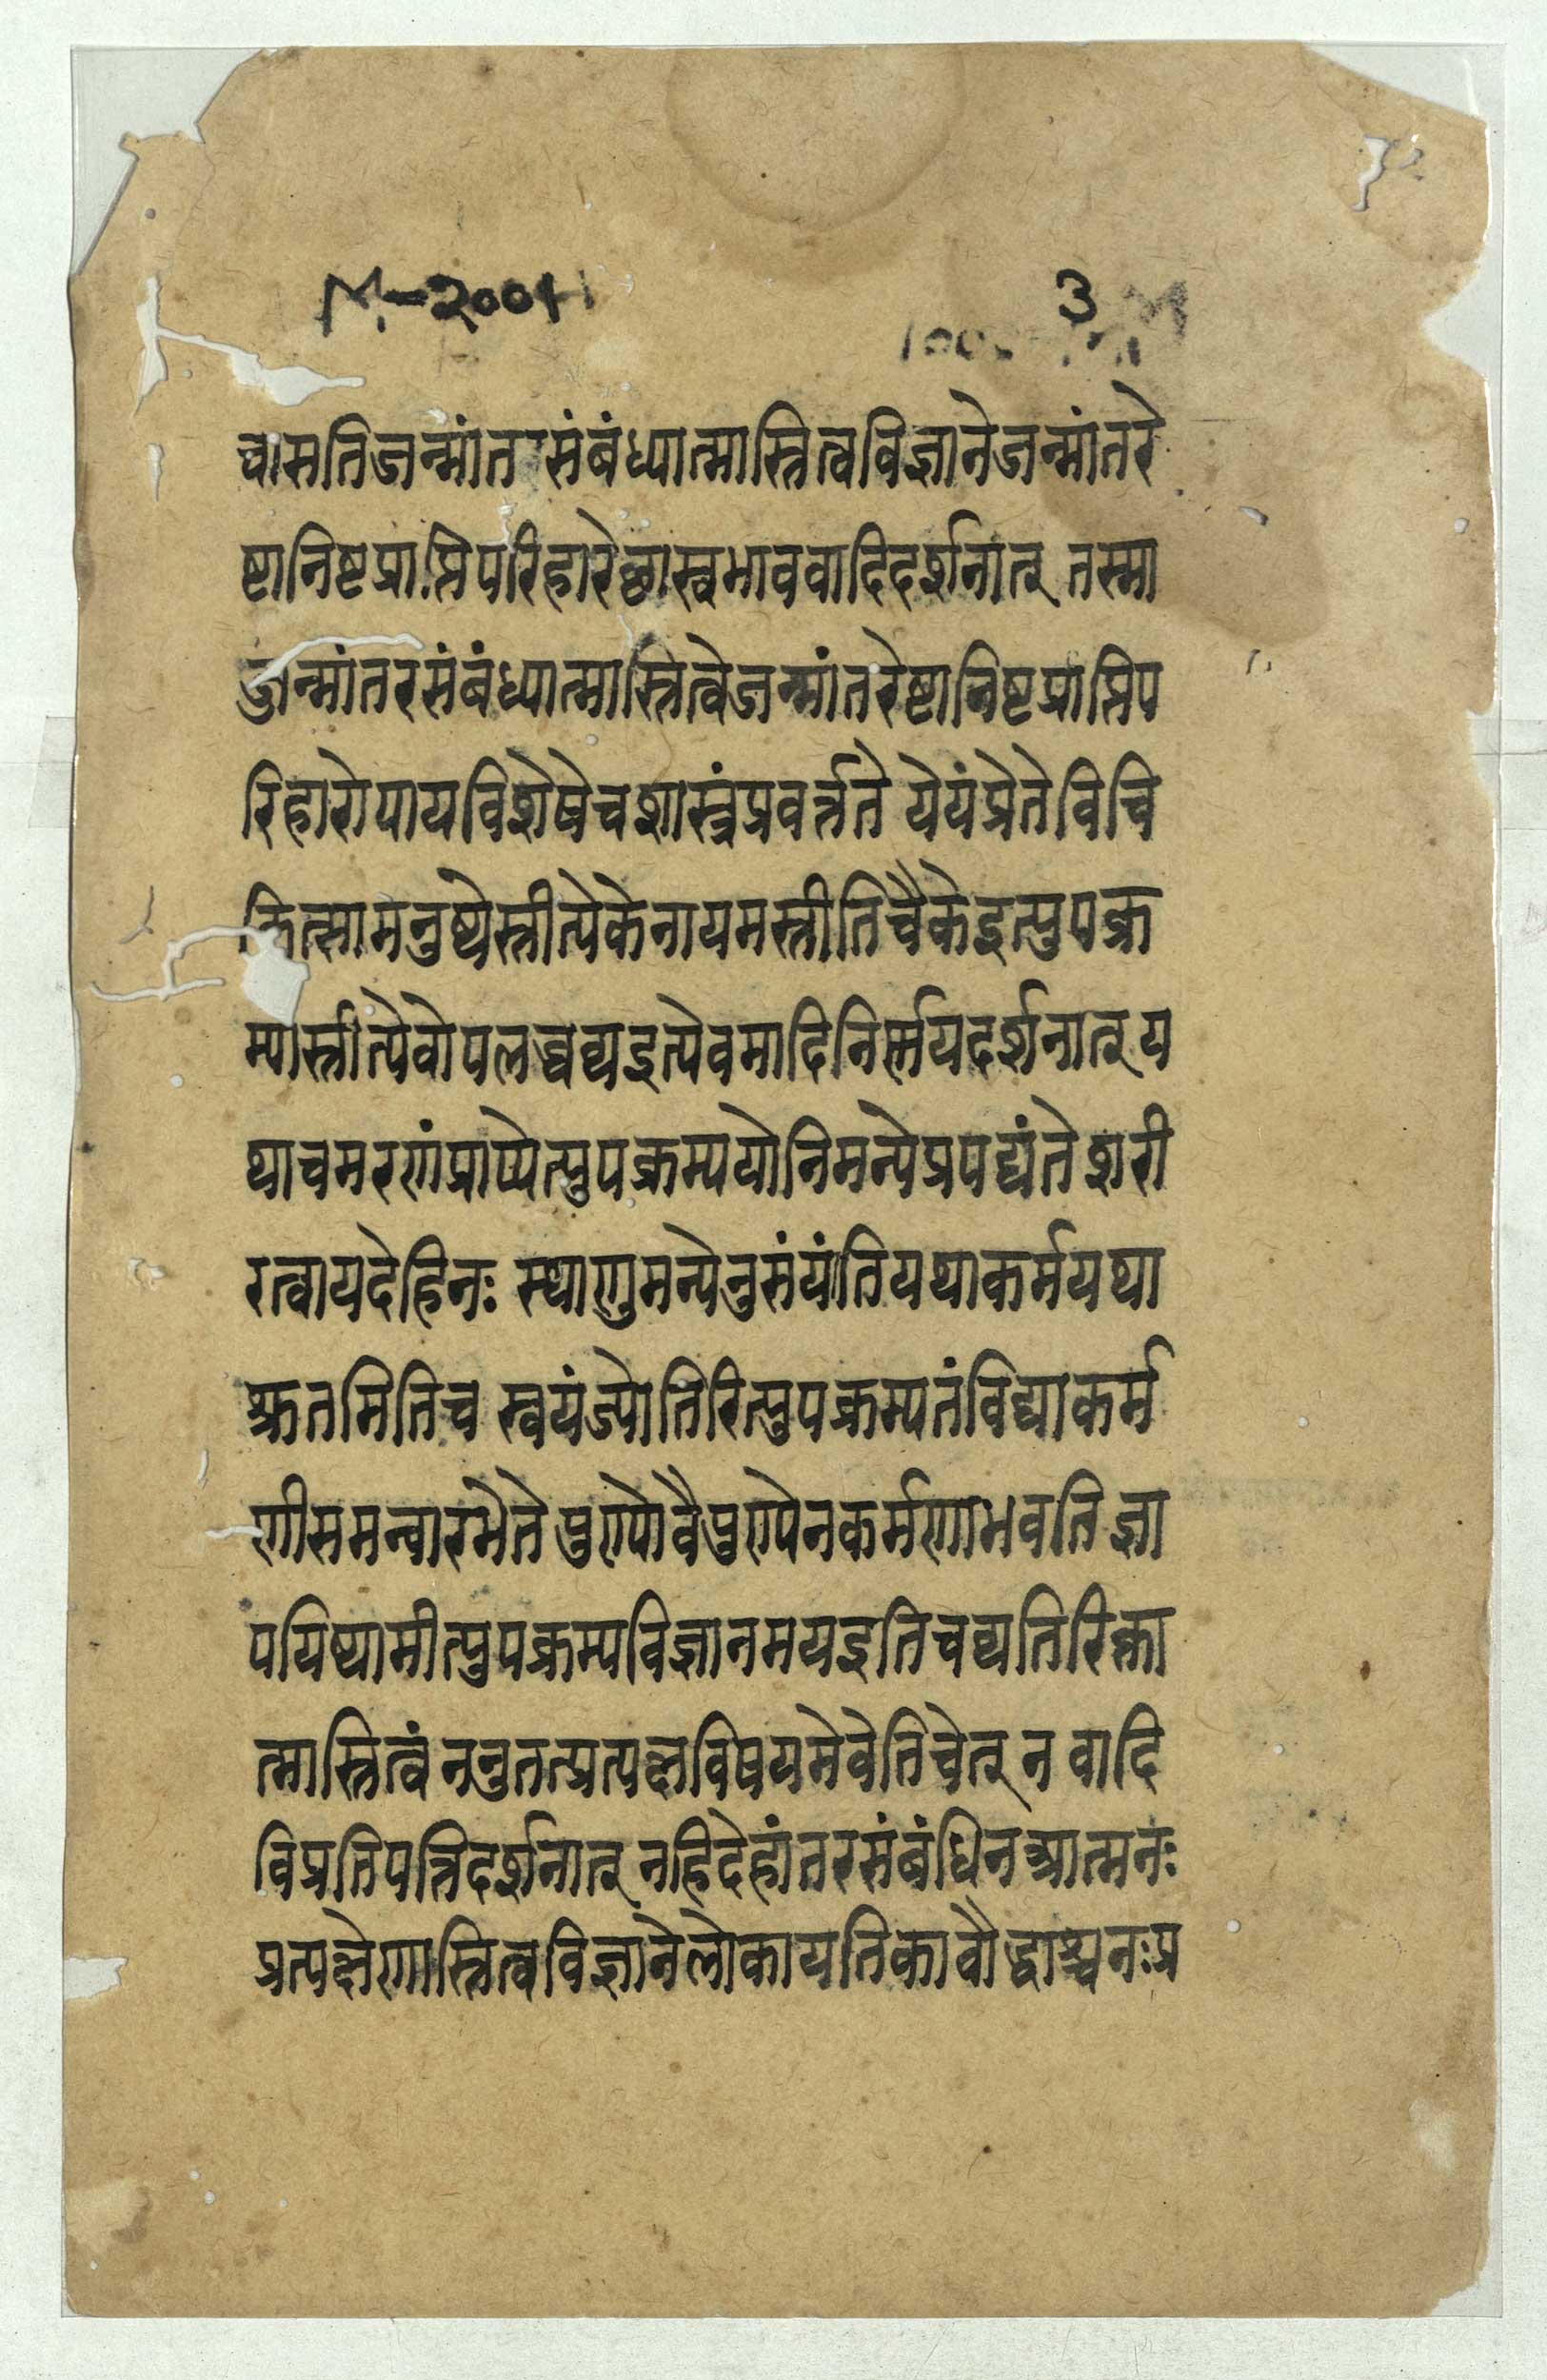 M-2001 3
चासतिजन्मांत संबंध्यात्मास्तित्वविज्ञानेजन्मांतरे
ष्टानिष्टप्राप्तिपरिहारेछास्वभाववादिदर्शनात् तस्मा
ज्जन्मांतरसंबंध्यात्मास्तित्वेजन्मांतरेष्टानिष्टप्राप्तिप
रिहारोपायविशेषेचशास्त्रंप्रवर्त्तते येयंप्रेतेविचि
कित्सामनुष्येस्तीत्येकेनायमस्तीतिचैकेइत्युपक्र
म्यास्तीत्येवोपलब्धव्यइत्येवमादिनिर्णयदर्शनात् य
थाचमरणंप्राप्येत्युपक्रम्ययोनिमन्येप्रपद्यंतेशरी
रत्वायदेहिनः स्थाणुमन्येनुसंयंतियथाकर्मयथा
श्रुतमितिच स्वयंज्योतिरित्युपक्रम्यतंविद्याकर्म
णीसमन्वारभेते पुण्योवैपुण्येनकर्मणाभवति ज्ञा
पयिष्यामीत्युपक्रम्यविज्ञानमयइतिचव्यतिरिक्ता
त्मास्तित्वं ननुतत्प्रत्यक्षविषयमेवेतिचेत् न वादि
विप्रतिपत्तिदर्शनात् नहिदेहांतरसंबंधिनआत्मनः
प्रत्यक्षेणास्तित्वविज्ञानेलोकायतिकाबौद्धाश्चनःप्र